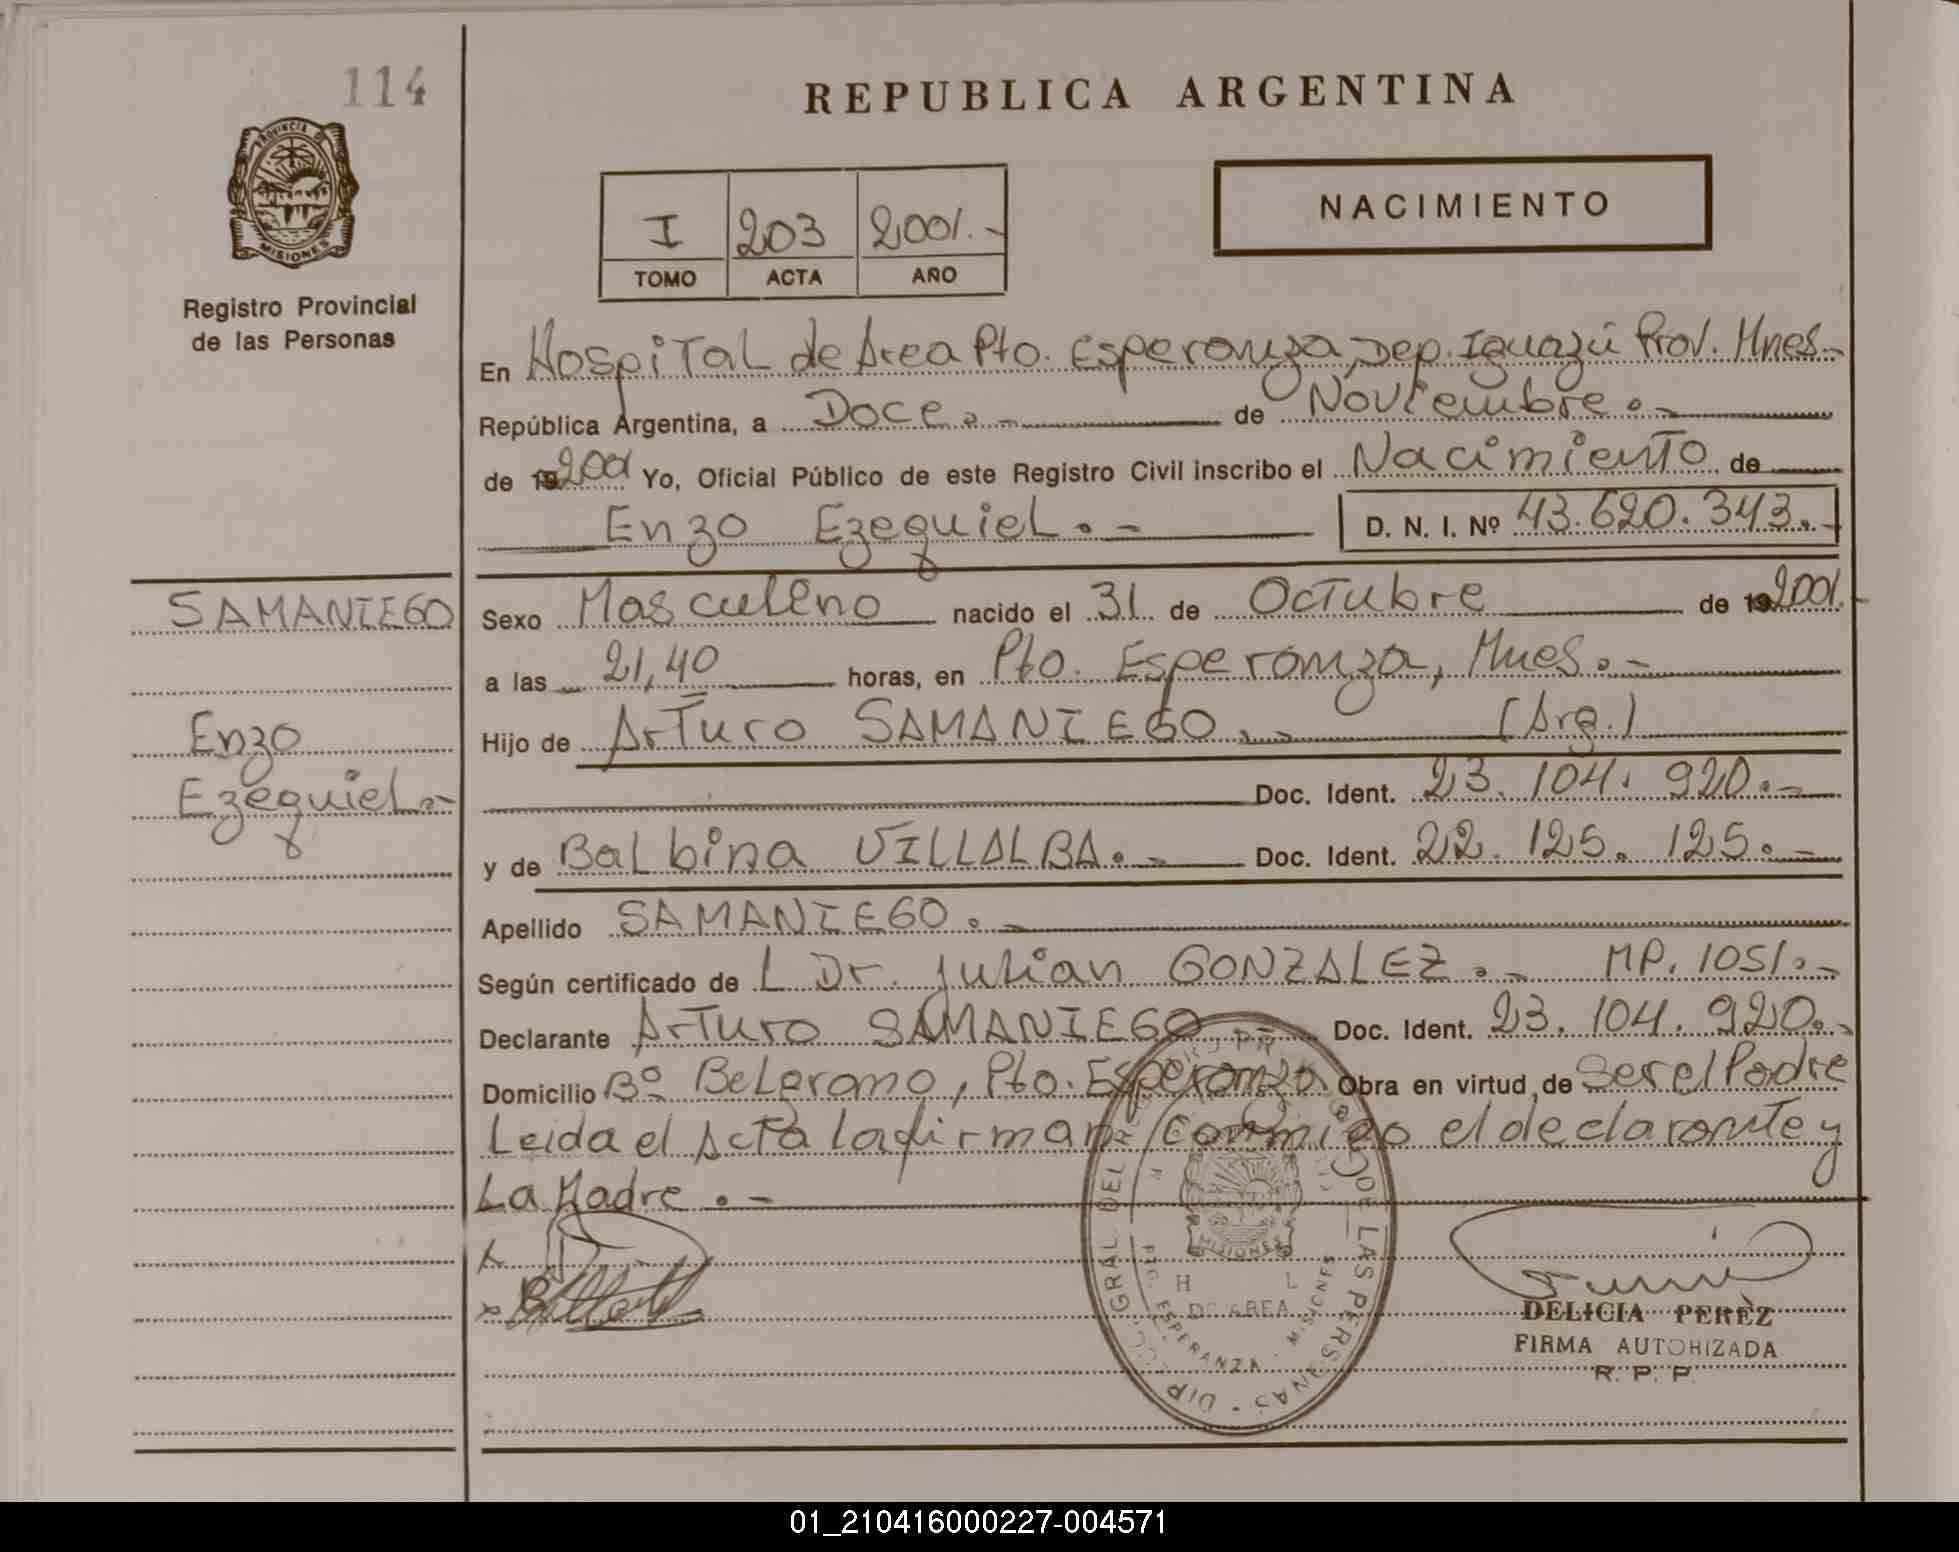 114
REPUBLICA ARGENTINA
PROVINCIA DE
MISIONES
Registro Provincial
de las Personas
I 203 2001.-
TOMO ACTA AÑO
NACIMIENTO
En Hospital de Area Pto. Esperanza, Dep. Iguazú Prov. Mnes.-
República Argentina, a Doce.- de Noviembre.-
de 192001 Yo, Oficial Público de este Registro Civil inscribo el Nacimiento de
Enzo Ezequiel.- D. N. I. Nº 43.620.343.-
SAMANIEGO
Enzo
Ezequiel.-
Sexo Masculino nacido el 31 de Octubre de 192001.-
a las 21,40 horas, en Pto. Esperanza, Mnes.-
Hijo de Arturo SAMANIEGO.- (Arg.)
Doc. Ident. 23.104.920.-
y de Balbina VILLALBA.- Doc. Ident. 22.125.125.-
Apellido SAMANIEGO.-
Según certificado de L Dr. Julian GONZALEZ.- MP. 1051.-
Declarante Arturo SAMANIEGO Doc. Ident. 23.104.920.-
Domicilio Bº Belgrano, Pto. Esperanza Obra en virtud de Ser el Padre
Leida el Acta la firman Conmigo el declarante y
La Madre.-
DELICIA PERÈZ
FIRMA AUTORIZADA
R. P. P.
GRAL. DEL DE LAS PERSONAS
MISIONES
DE AREA
ESPERANZA - MISIONES
01_210416000227-004571